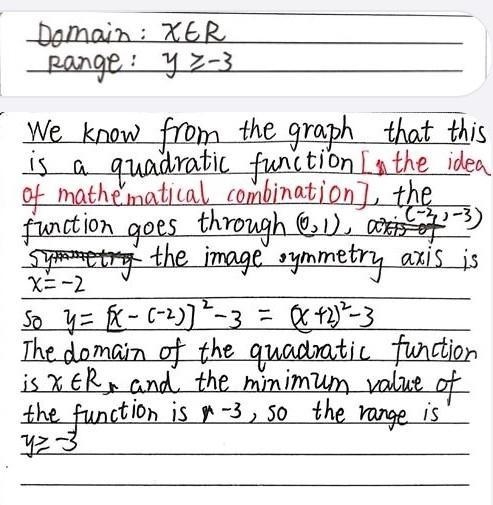 Domain: x∈R
Range: y≥-3
We know from the graph that this
is a quadratic function [the idea
of mathematical combination], the
function goes through (0,1), axis of (-2,-3)
symmetry the image symmetry axis is
x=-2
So y=[x-(-2)]²-3 = (x+2)²-3
The domain of the quadratic function
is x∈R, and the minimum value of
the function is -3, so the range is
y≥-3